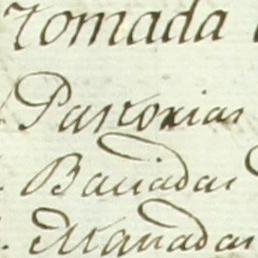 tomada
Pastorias
Bañadas
Manadas